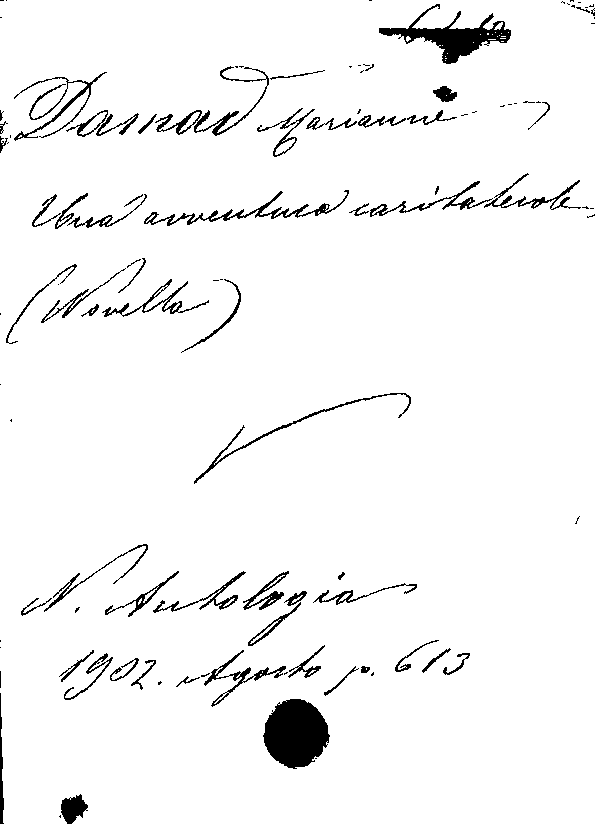 Damad Marianne
Una avventura caritatevole
(Novella)
N. Antologia
1902. Agosto p. 613